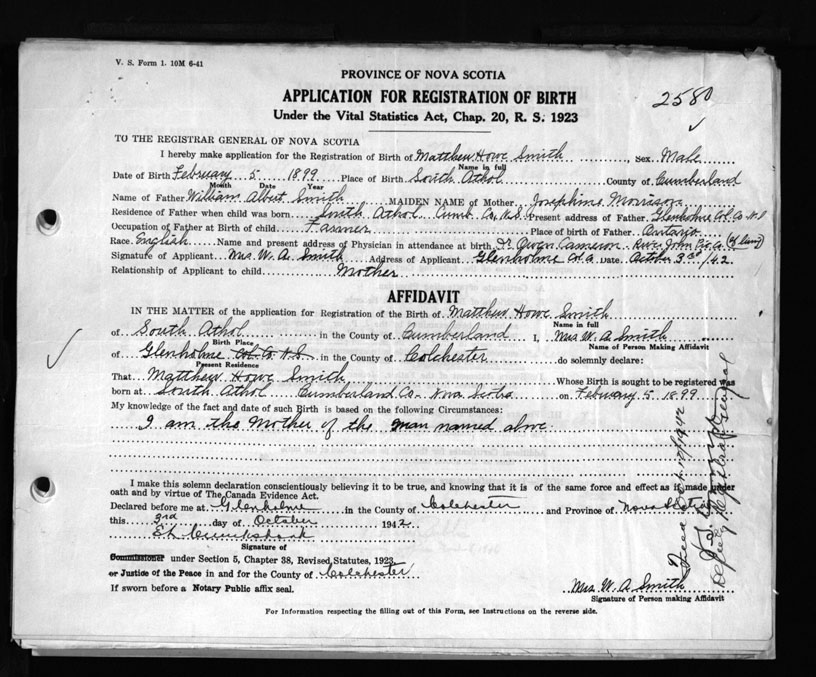 V. S. Form 1. 10M 6-41
PROVINCE OF NOVA SCOTIA
APPLICATION FOR REGISTRATION OF BIRTH
2580
Under the Vital Statistics Act, Chap. 20, R. S. 1923
TO THE REGISTRAR GENERAL OF NOVA SCOTIA
I hereby make application for the Registration of Birth of Matthew Howe Smith, Sex Male
Name in full
Date of Birth February 5 1899 Place of Birth South Athol County of Cumberland
Month Date Year
Name of Father William Albert Smith MAIDEN NAME of Mother Josephine Morrison
Residence of Father when child was born South Athol Cumb. Co. N.S. Present address of Father Glenholme Col. Co. N.S
Occupation of Father at Birth of child Farmer Place of birth of Father Ontario
Race English Name and present address of Physician in attendance at birth Dr. Owen Cameron - River John Pic. Co. (if living)
Signature of Applicant Mrs. W. A. Smith Address of Applicant Glenholme Col. Co. Date October 3rd /42
Relationship of Applicant to child Mother
AFFIDAVIT
IN THE MATTER of the application for Registration of the Birth of Matthew Howe Smith
Name in full
of South Athol in the County of Cumberland I, Mrs W. A. Smith
Birth Place Name of Person Making Affidavit
of Glenholme Col. Co. N.S. in the County of Colchester do solemnly declare:
Present Residence
That Matthew Howe Smith Whose Birth is sought to be registered was
born at South Athol Cumberland Co. Nova Scotia on February 5 1899
My knowledge of the fact and date of such Birth is based on the following Circumstances:
I am the Mother of the man named above
I make this solemn declaration conscientiously believing it to be true, and knowing that it is of the same force and effect as if made under
oath and by virtue of The Canada Evidence Act.
Declared before me at Glenholme in the County of Colchester and Province of Nova Scotia
this 3rd day of October 1942
Signature of
Commissioner under Section 5, Chapter 38, Revised Statutes, 1923
or Justice of the Peace in and for the County of Colchester
If sworn before a Notary Public affix seal.
Mrs. W. A. Smith
Signature of Person making Affidavit
For Information respecting the filling out of this Form, see Instructions on the reverse side.
Deputy Registrar General